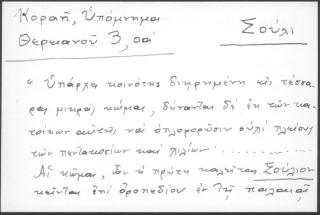 Κοραῆ, Ὑπόμνημα
Θερειανοῦ 3, οα'
Σούλι
"Ὑπάρχει κοινότης διῃρημένη εἰς τέσσα-
ρας μικρὰς κώμας, δύνανται δὲ ἐκ τῶν κα-
τοίκων αὐτῆς νὰ ὁπλοφορῶσιν οὐχὶ πλείους
τῶν πεντακοσίων καὶ χιλίων . . . . . . . . . .
Αἱ κῶμαι, ὧν ἡ πρώτη καλεῖται Σούλιον
κεῖνται ἐπὶ ὀροπεδίου ἐν τῇ παλαιᾷ